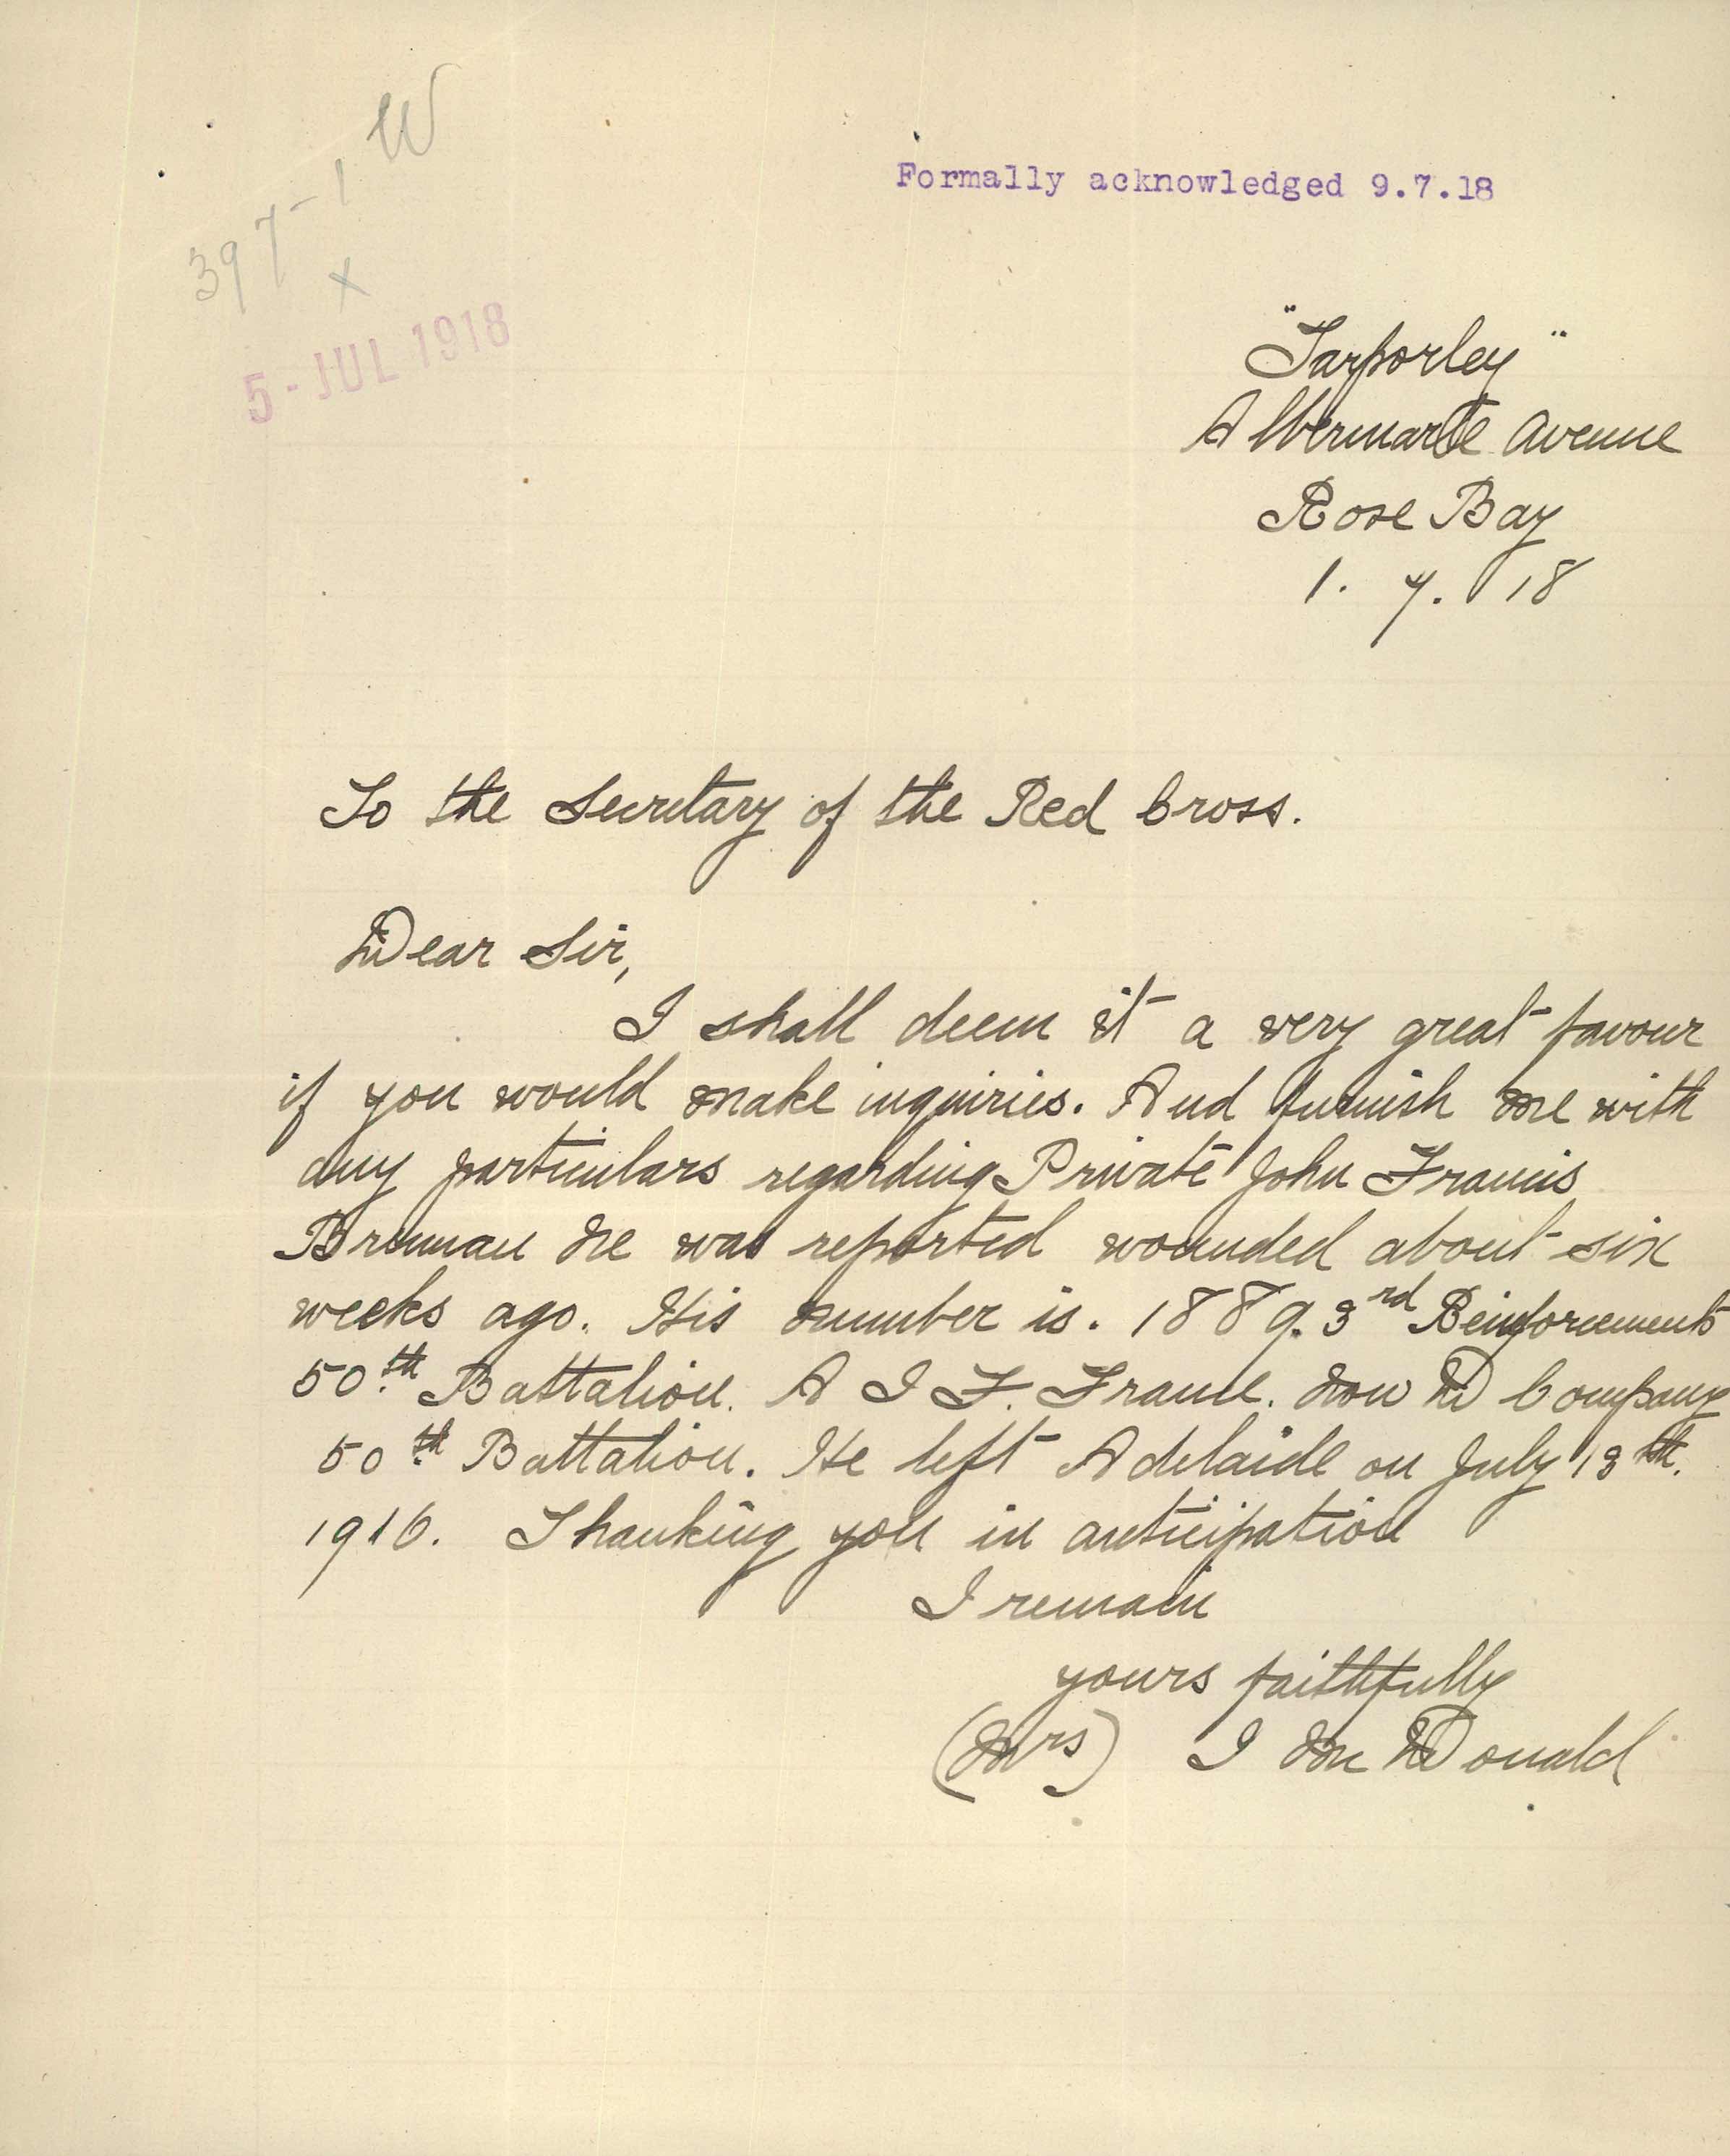 W
397-1
X
5-JUL 1918
Formally acknowledged 9.7.18
"Tarporley"
Albermarle Avenue
Rose Bay
1. 7. 18
To the Secretary of the Red Cross.
Dear Sir,
I shall deem it a very great favour
if you would make inquiries. And furnish me with
any particulars regarding Private John Francis
Brennan He was reported wounded about six
weeks ago. His number is. 1889. 3rd Reinforcements
50th Battalion. A I F. France. Now D Company
50th Battalion. He left Adelaide on July 13th.
1916. Thanking you in anticipation
I remain
yours faithfully
(Mrs) I McDonald